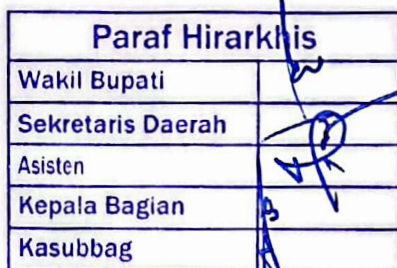 Paraf Hirarkhis
Wakil Bupati
Sekretaris Daerah
Asisten
Kepala Bagian
Kasubbag